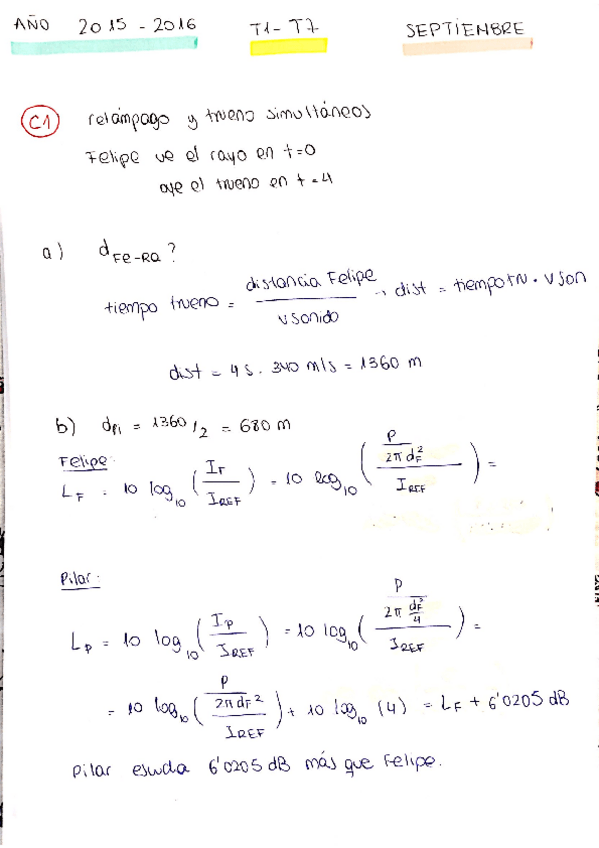 AÑO 2015-2016 T1-T7 SEPTIEMBRE
C1 relámpago y trueno simultáneos
Felipe ve el rayo en t=0
oye el trueno en t=4
a) d_FE-RA ?
tiempo trueno = distancia Felipe / v sonido → dist = tiempo tr · v son
dist = 4 s · 340 m/s = 1360 m
b) d_Pi = 1360/2 = 680 m
Felipe:
L_F = 10 log_10 (I_F / I_REF) = 10 log_10 ((P / 2π d_F²) / I_REF) =
Pilar:
L_P = 10 log_10 (I_P / I_REF) = 10 log_10 ((P / (2π d_F²/4)) / I_REF) =
= 10 log_10 ((P / 2π d_F²) / I_REF) + 10 log_10 (4) = L_F + 6'0205 dB
Pilar escucha 6'0205 dB más que Felipe.